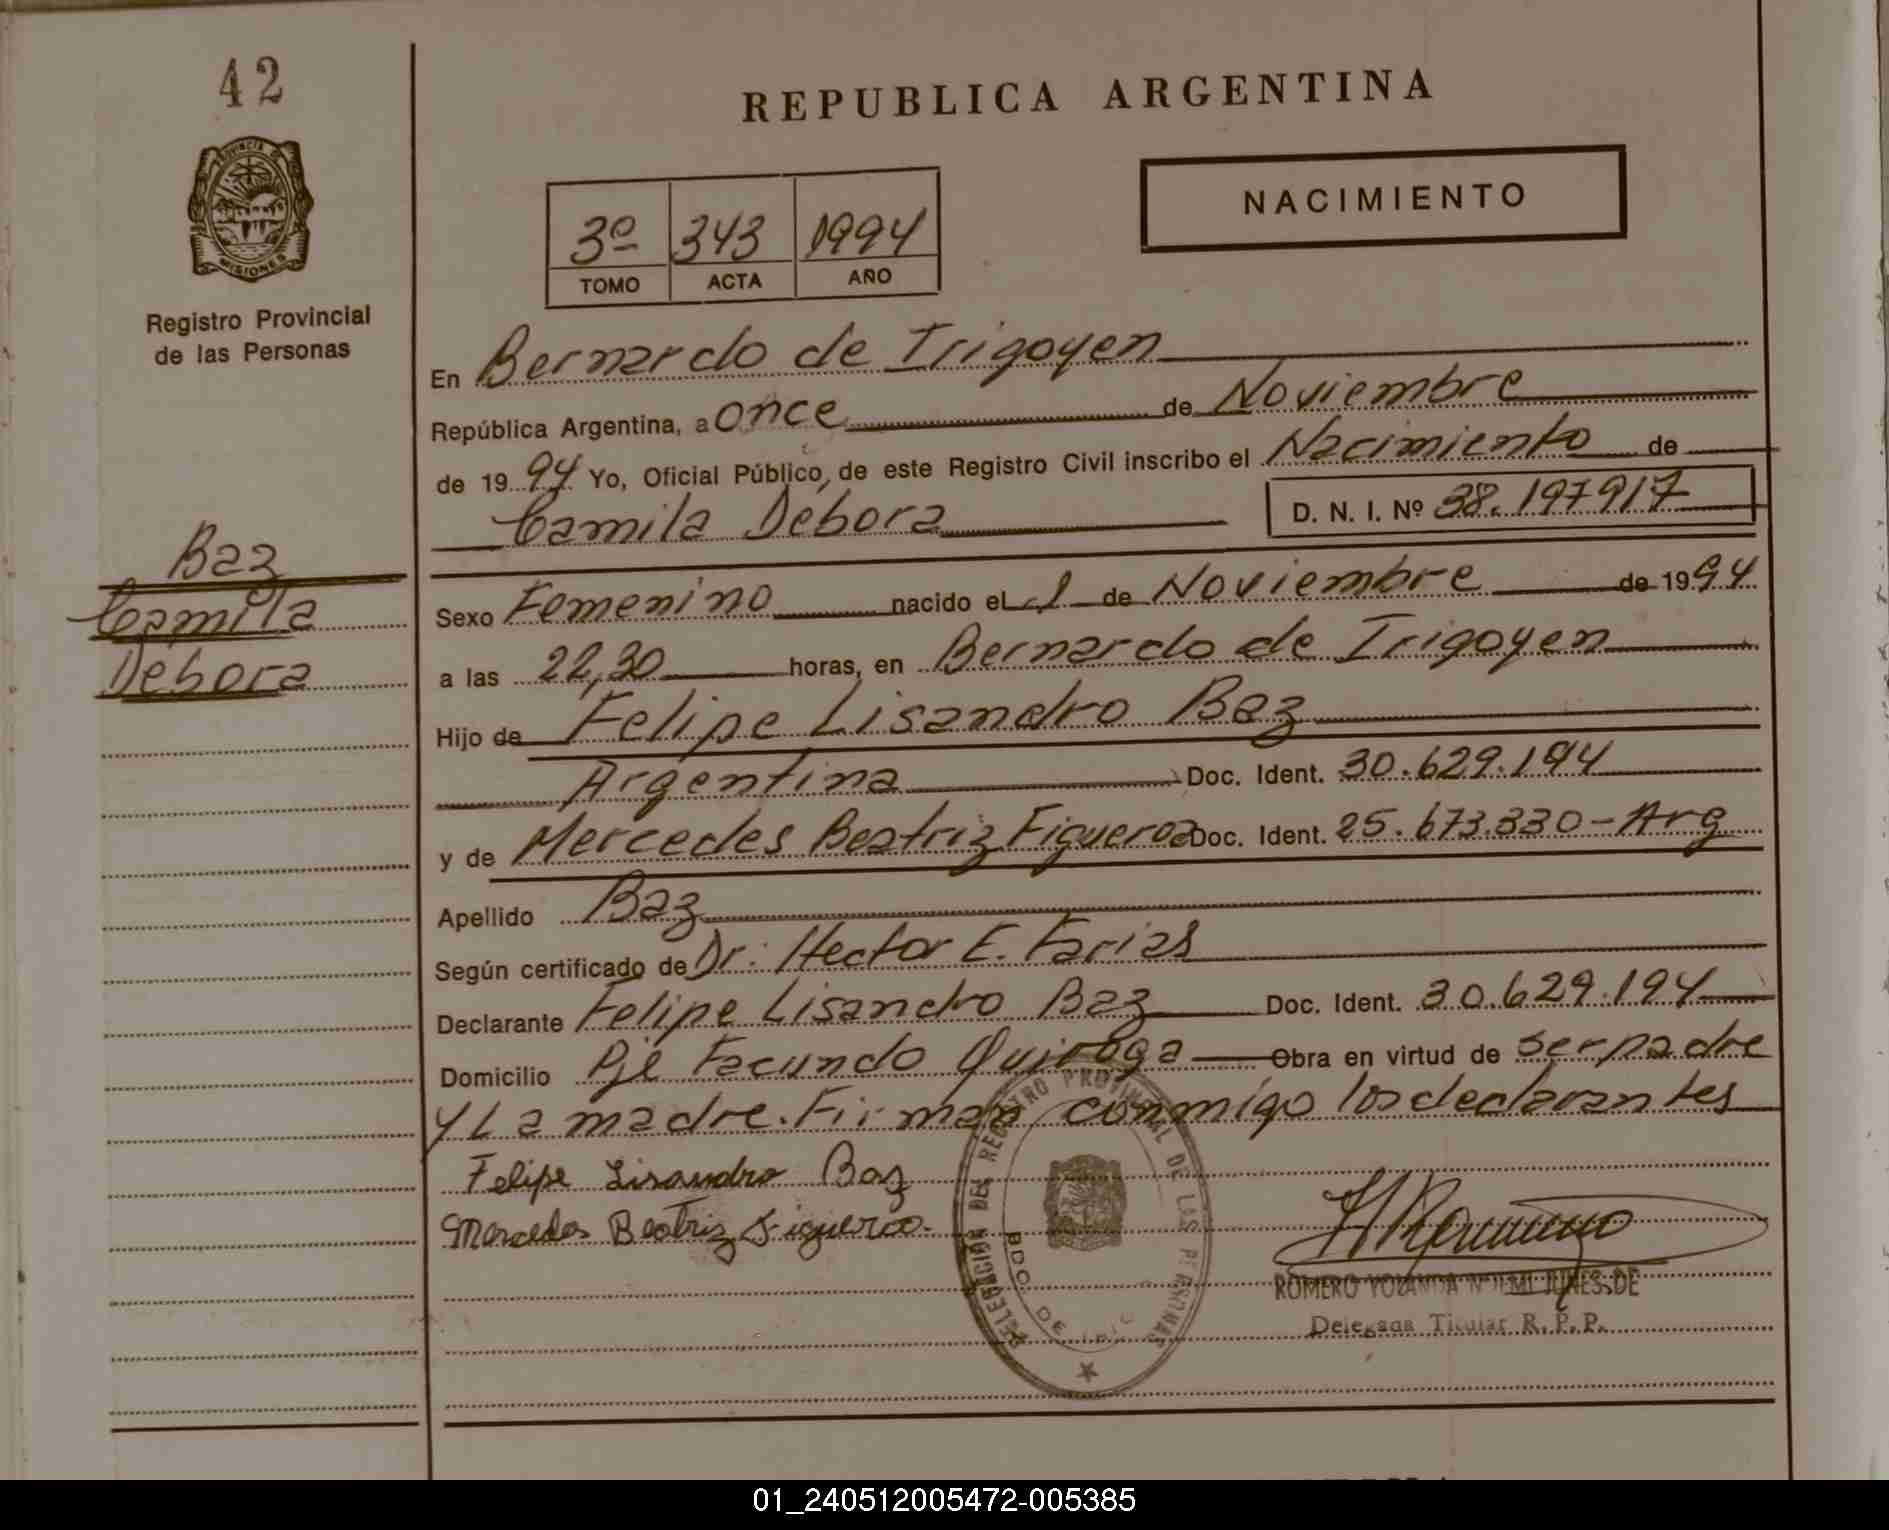 42
REPUBLICA ARGENTINA
PROVINCIA DE
MISIONES
Registro Provincial
de las Personas
3º 343 1994
TOMO ACTA AÑO
NACIMIENTO
En Bernardo de Irigoyen
República Argentina, a once de Noviembre
de 1994 Yo, Oficial Público, de este Registro Civil inscribo el Nacimiento de
Camila Debora D. N. I. Nº 38.197917
Baz
Camila
Debora
Sexo Femenino nacido el 1 de Noviembre de 1994
a las 22,30 horas, en Bernardo de Irigoyen
Hijo de Felipe Lisandro Baz
Argentina Doc. Ident. 30.629.194
y de Mercedes Beatriz Figueroa Doc. Ident. 25.673.330-Arg
Apellido Baz
Según certificado de Dr: Hector E. Farias
Declarante Felipe Lisandro Baz Doc. Ident. 30.629.194
Domicilio Pje Facundo Quiroga Obra en virtud de ser padre
y La madre. Firman conmigo los declarantes
Felipe Lisandro Baz
Mercedes Beatriz Figueroa.
DELEGACION DEL REGISTRO PROVINCIAL DE LAS PERSONAS
BDO. DE
ROMERO YOLANDA NOEMI JUNES DE
Delegada Titular R.P.P.
01_240512005472-005385